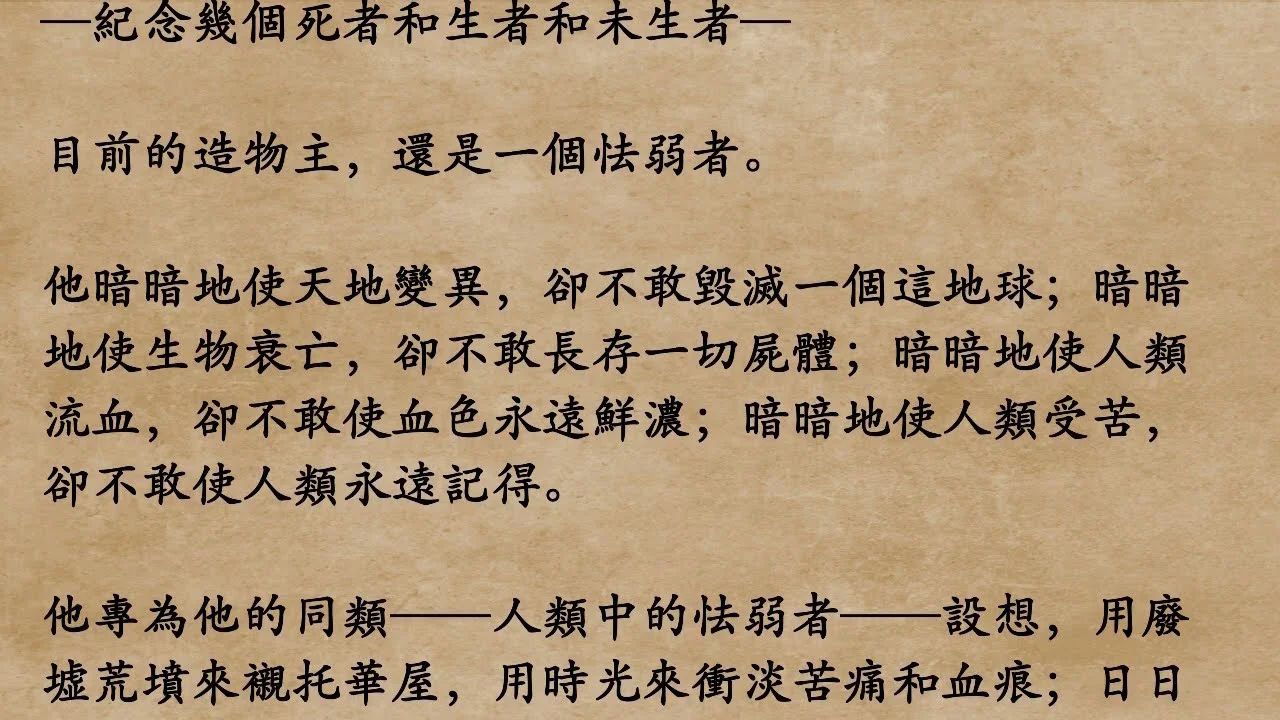 —紀念幾個死者和生者和未生者—
目前的造物主，還是一個怯弱者。
他暗暗地使天地變異，卻不敢毀滅一個這地球；暗暗
地使生物衰亡，卻不敢長存一切屍體；暗暗地使人類
流血，卻不敢使血色永遠鮮濃；暗暗地使人類受苦，
卻不敢使人類永遠記得。
他專為他的同類——人類中的怯弱者——設想，用廢
墟荒墳來襯托華屋，用時光來衝淡苦痛和血痕；日日